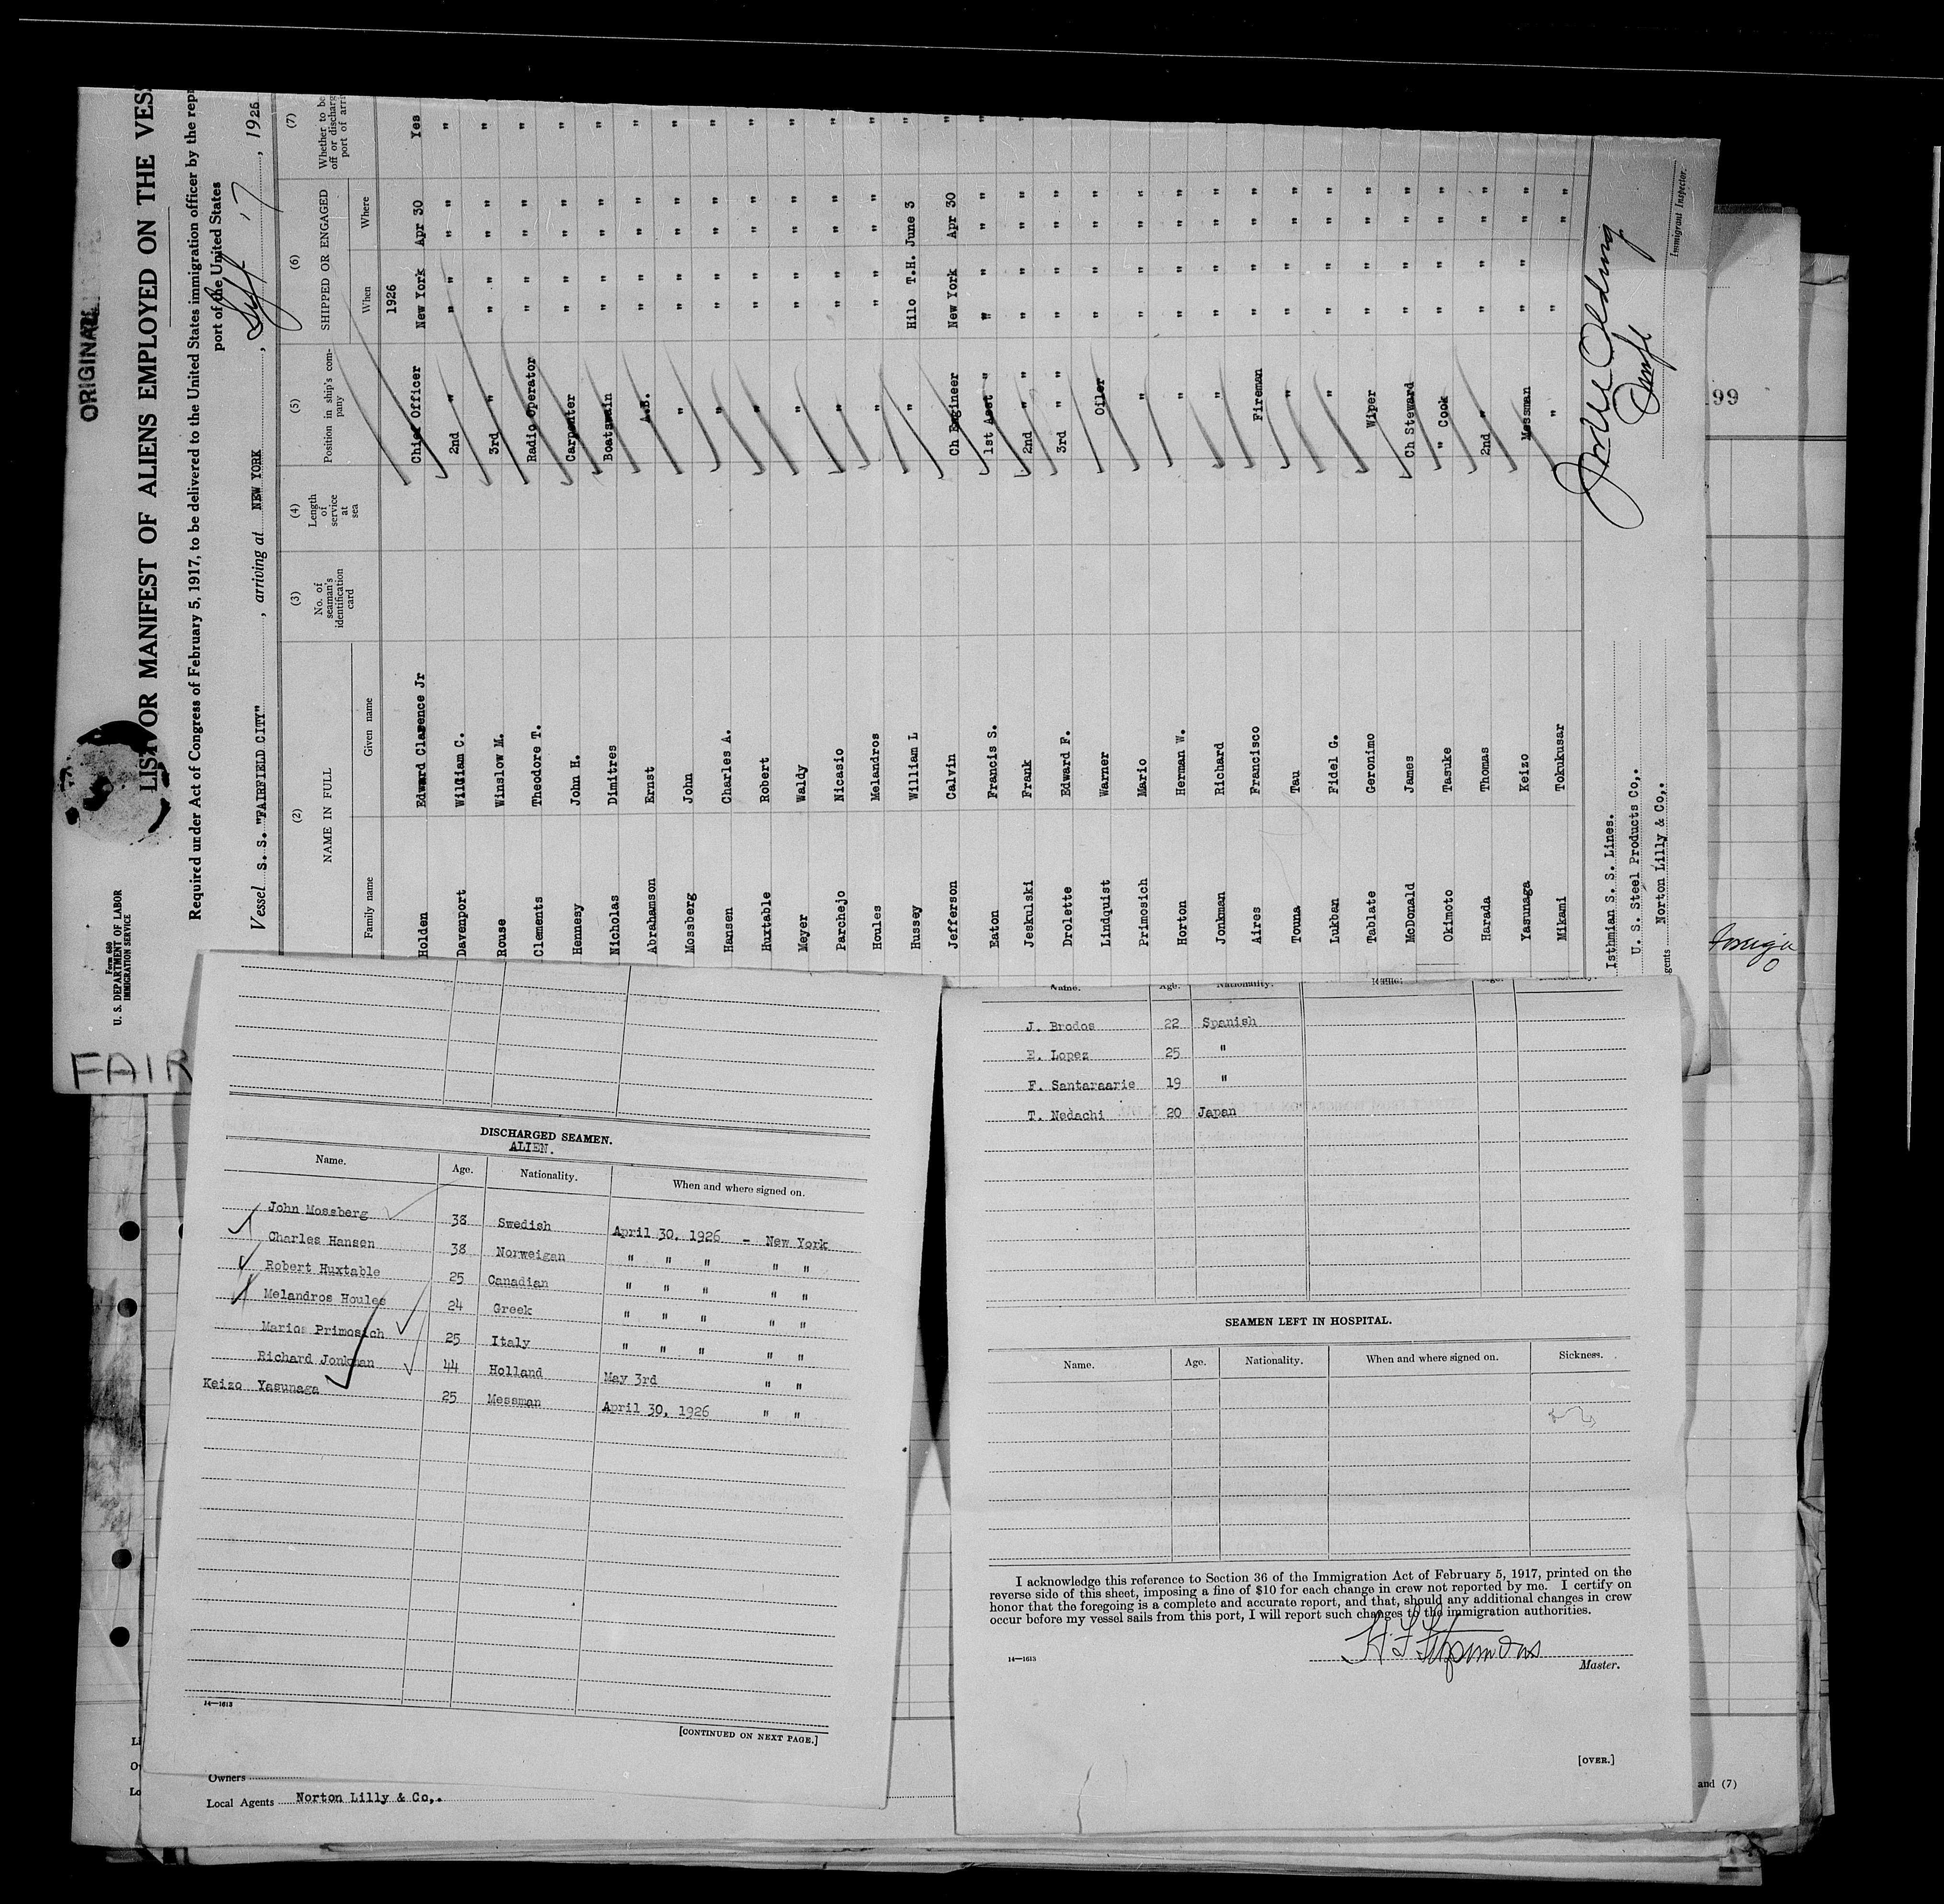 ORIGINAL
Form 680
U. S. DEPARTMENT OF LABOR
IMMIGRATION SERVICE
LIST OR MANIFEST OF ALIENS EMPLOYED ON THE VESS
Required under Act of Congress of February 5, 1917, to be delivered to the United States immigration officer by the repr
port of the United States
Vessel S. S. "FAIRFIELD CITY", arriving at NEW YORK, Sept 17, 1926
(2) (3) (4) (5) (6) (7)
NAME IN FULL
Family name Given name
No. of seaman's identification card
Length of service at sea
Position in ship's company
SHIPPED OR ENGAGED
When Where
Whether to be
off or discharg
port of arri
1926
Holden Edward Clarence Jr Chief Officer New York Apr 30 Yes
Davenport William C. 2nd " " " " " "
Rouse Winslow M. 3rd " " " " " "
Clements Theodore T. Radio Operator " " " " "
Hennesy John H. Carpenter " " " " "
Nicholas Dimitres Boatswain " " " " "
Abrahamson Ernst A.B. " " " " "
Mossberg John " " " " " "
Hansen Charles A. " " " " " "
Huxtable Robert " " " " " "
Meyer Waldy " " " " " "
Parchejo Nicasio " " " " " "
Houles Melandros " " " " " "
Hussey William L " Hilo T.H. June 3 "
Jefferson Calvin Ch Engineer New York Apr 30 "
Eaton Francis S. 1st Asst " " " " " "
Jeskulski Frank 2nd " " " " " " "
Drolette Edward F. 3rd " " " " " "
Lindquist Warner Oiler " " " "
Primosich Mario " " " " "
Horton Herman W. " " " " "
Jonkman Richard " " " " "
Aires Francisco Fireman " " " "
Touna Tau " " " " "
Lukban Fidel G. " " " " "
Tablate Geronimo Wiper " " " "
McDonald James Ch Steward " " " "
Okimoto Tasuke " Cook " " " "
Harada Thomas 2nd " " " " "
Yasunaga Keizo Messman " " " "
Mikami Tokukusar " " " "
Isthmian S. S. Lines.
U. S. Steel Products Co,.
gents Norton Lilly & Co,.
Immigrant Inspector.
99
foreign
FAIR
DISCHARGED SEAMEN.
ALIEN.
Name. Age. Nationality. When and where signed on.
John Mossberg 38 Swedish April 30, 1926 - New York
Charles Hansen 38 Norweigan " " " " "
Robert Huxtable 25 Canadian " " " " "
Melandros Houles 24 Greek " " " " "
Marios Primosich 25 Italy " " " " "
Richard Jonkman 44 Holland May 3rd " "
Keizo Yasunaga 25 Messman April 30, 1926 " "
14—1613
[CONTINUED ON NEXT PAGE.]
Owners
Local Agents Norton Lilly & Co,.
Name. Age. Nationality. Name. Age. Nationality.
J. Brodos 22 Spanish
E. Lopez 25 "
F. Santaraarie 19 "
T. Nedachi 20 Japan
SEAMEN LEFT IN HOSPITAL.
Name. Age. Nationality. When and where signed on. Sickness.
I acknowledge this reference to Section 36 of the Immigration Act of February 5, 1917, printed on the
reverse side of this sheet, imposing a fine of $10 for each change in crew not reported by me. I certify on
honor that the foregoing is a complete and accurate report, and that, should any additional changes in crew
occur before my vessel sails from this port, I will report such changes to the immigration authorities.
14—1613
Master.
[OVER.]
and (7)